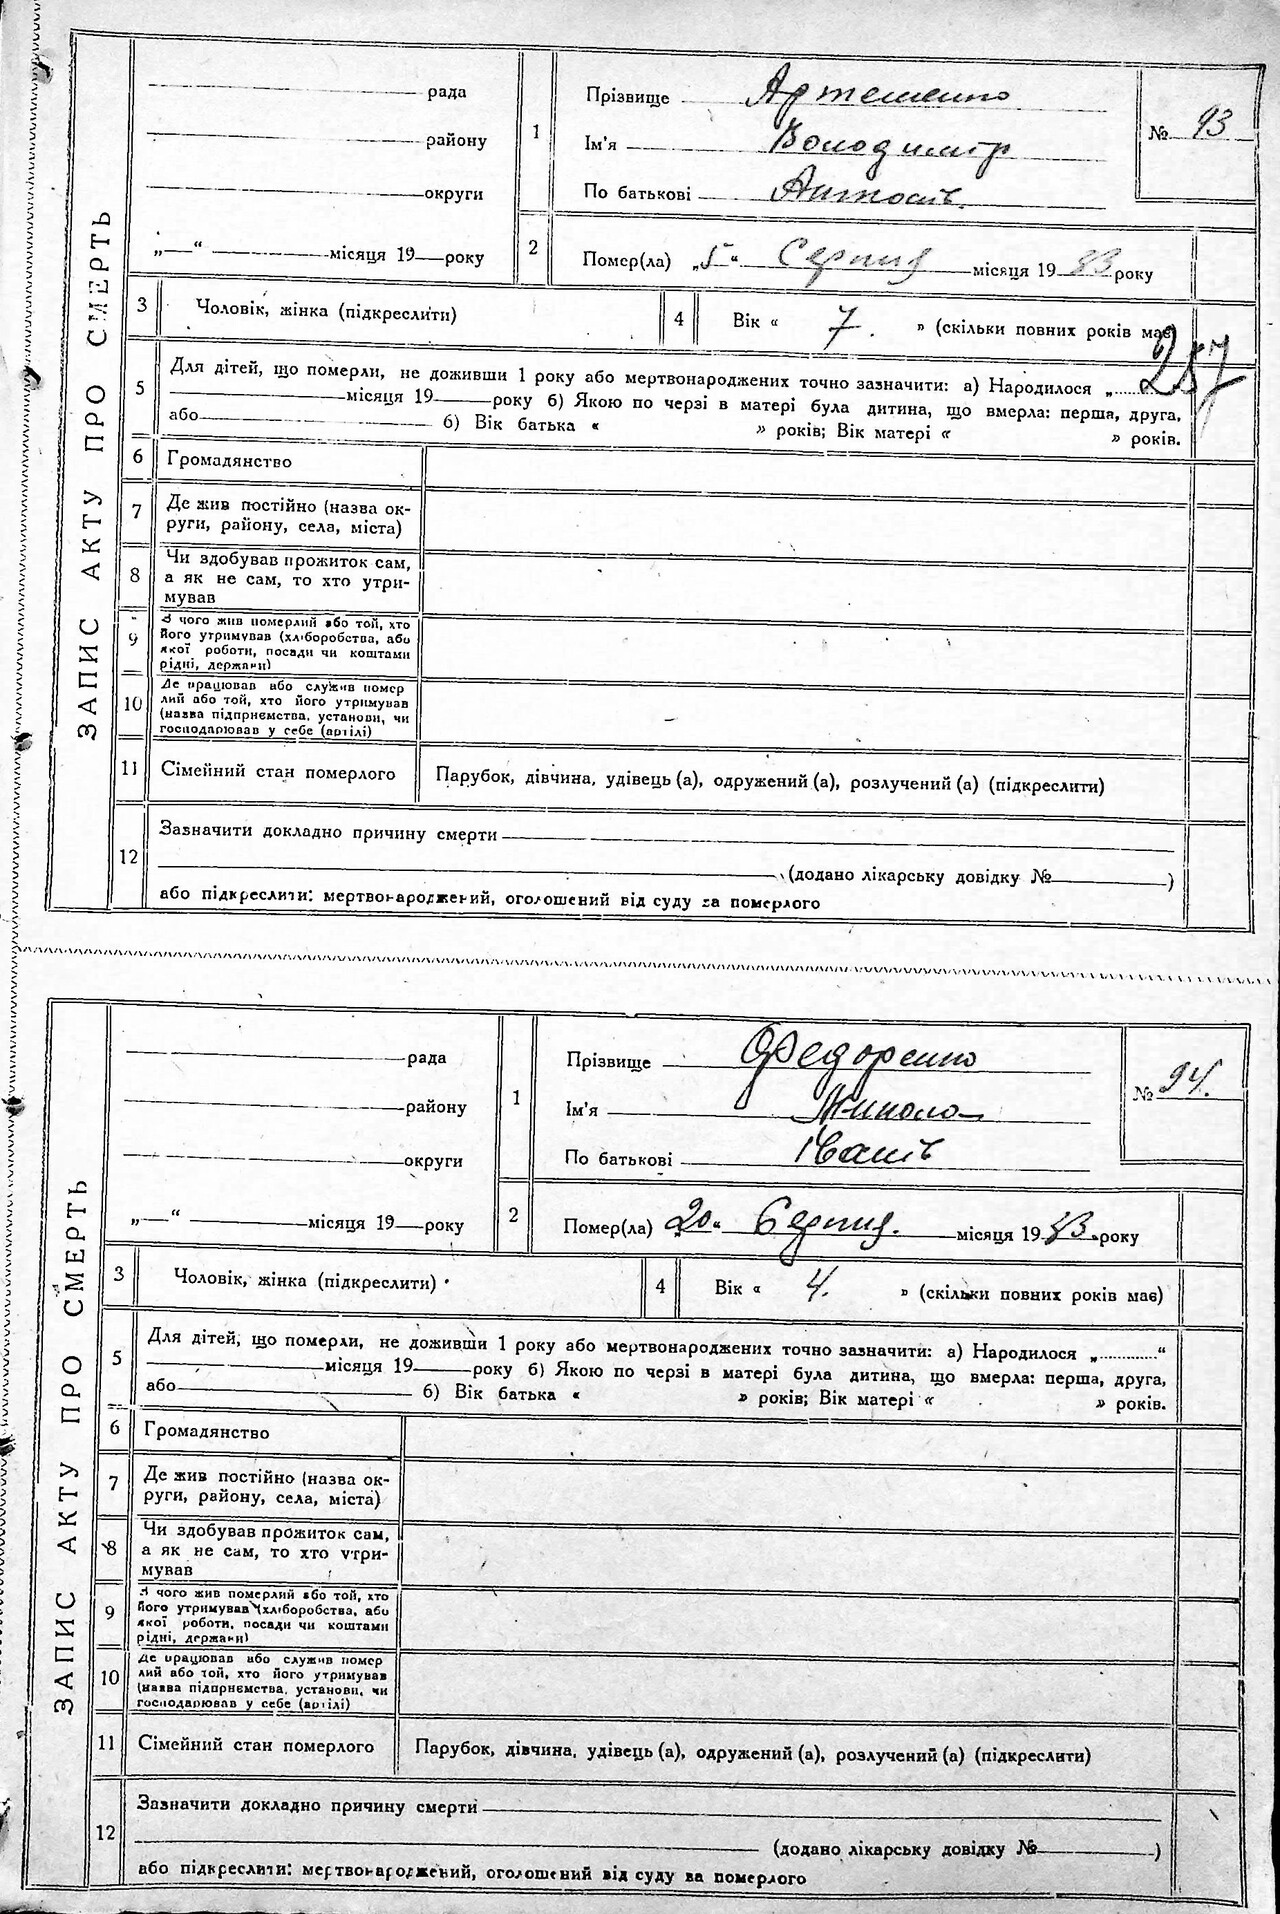 ЗАПИС АКТУ ПРО СМЕРТЬ
рада
району
округи
„—“ місяця 19 року
1
Прізвище Артеменко
Ім'я Володимір
По батькові Антосів.
№ 93
2
Помер(ла) „5“ Серпня місяця 1933 року
3
Чоловік, жінка (підкреслити)
4
Вік « 7. » (скільки повних років має)
287
5
Для дітей, що померли, не доживши 1 року або мертвонароджених точно зазначити: а) Народилося „
місяця 19 року б) Якою по черзі в матері була дитина, що вмерла: перша, друга,
або б) Вік батька « » років; Вік матері « » років.
6
Громадянство
7
Де жив постійно (назва ок-
руги, району, села, міста)
8
Чи здобував прожиток сам,
а як не сам, то хто утри-
мував
9
З чого жив померлий або той, хто
його утримував (хліборобства, або
якої роботи, посади чи коштами
рідні, держави)
10
Де працював або служив помер
лий або той, хто його утримував
(назва підприємства, установи, чи
господарював у себе (артілі)
11
Сімейний стан померлого
Парубок, дівчина, удівець (а), одружений (а), розлучений (а) (підкреслити)
12
Зазначити докладно причину смерти
(додано лікарську довідку № )
або підкреслити: мертвонароджений, оголошений від суду за померлого
ЗАПИС АКТУ ПРО СМЕРТЬ
рада
району
округи
„—“ місяця 19 року
1
Прізвище Федоренко
Ім'я Микола
По батькові Іванів
№ 94.
2
Помер(ла) „20“ Серпня. місяця 1933. року
3
Чоловік, жінка (підкреслити)
4
Вік « 4. » (скільки повних років має)
5
Для дітей, що померли, не доживши 1 року або мертвонароджених точно зазначити: а) Народилося „ “
місяця 19 року б) Якою по черзі в матері була дитина, що вмерла: перша, друга,
або б) Вік батька « » років; Вік матері « » років.
6
Громадянство
7
Де жив постійно (назва ок-
руги, району, села, міста)
8
Чи здобував прожиток сам,
а як не сам, то хто утри-
мував
9
З чого жив померлий або той, хто
його утримував (хліборобства, або
якої роботи, посади чи коштами
рідні, держави)
10
Де працював або служив помер
лий або той, хто його утримував
(назва підприємства, установи, чи
господарював у себе (артілі)
11
Сімейний стан померлого
Парубок, дівчина, удівець (а), одружений (а), розлучений (а) (підкреслити)
12
Зазначити докладно причину смерти
(додано лікарську довідку № )
або підкреслити: мертвонароджений, оголошений від суду за померлого